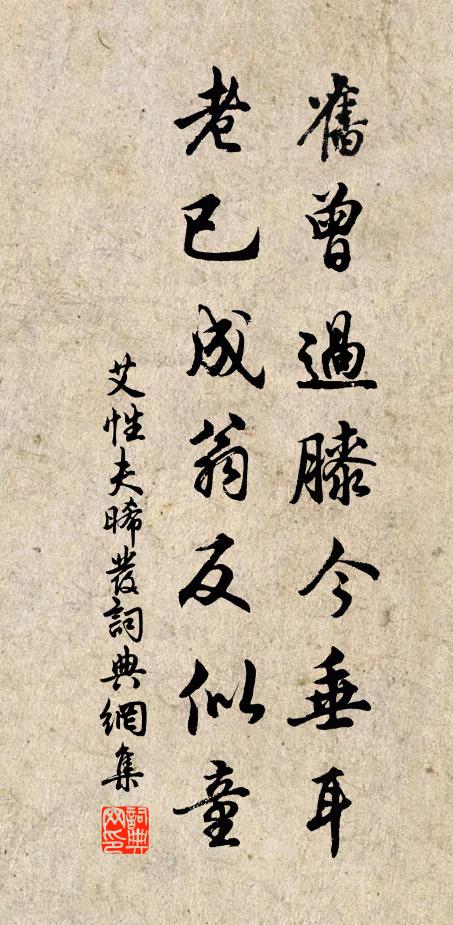 舊曾過膝今垂耳
老已成翁反似童
艾性夫晞發詞典網集
詞典網印